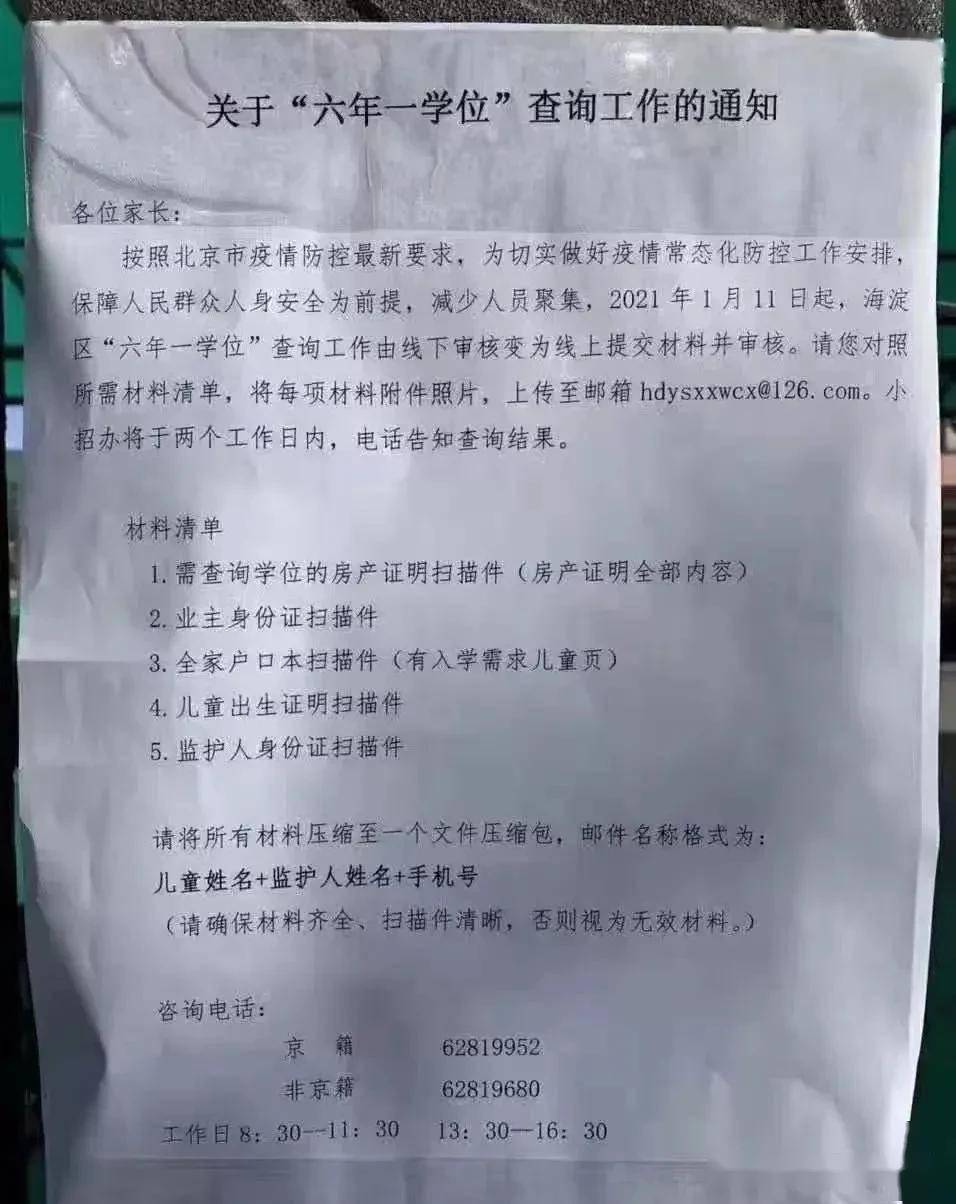 关于“六年一学位”查询工作的通知
各位家长：
按照北京市疫情防控最新要求，为切实做好疫情常态化防控工作安排，
保障人民群众人身安全为前提，减少人员聚集，2021 年 1 月 11 日起，海淀
区“六年一学位”查询工作由线下审核变为线上提交材料并审核。请您对照
所需材料清单，将每项材料附件照片，上传至邮箱 hdysxxwcx@126.com。小
招办将于两个工作日内，电话告知查询结果。
材料清单
1.需查询学位的房产证明扫描件（房产证明全部内容）
2.业主身份证扫描件
3.全家户口本扫描件（有入学需求儿童页）
4.儿童出生证明扫描件
5.监护人身份证扫描件
请将所有材料压缩至一个文件压缩包，邮件名称格式为：
儿童姓名+监护人姓名+手机号
（请确保材料齐全、扫描件清晰，否则视为无效材料。）
咨询电话：
京 籍 62819952
非京籍 62819680
工作日 8：30--11：30 13：30—16：30